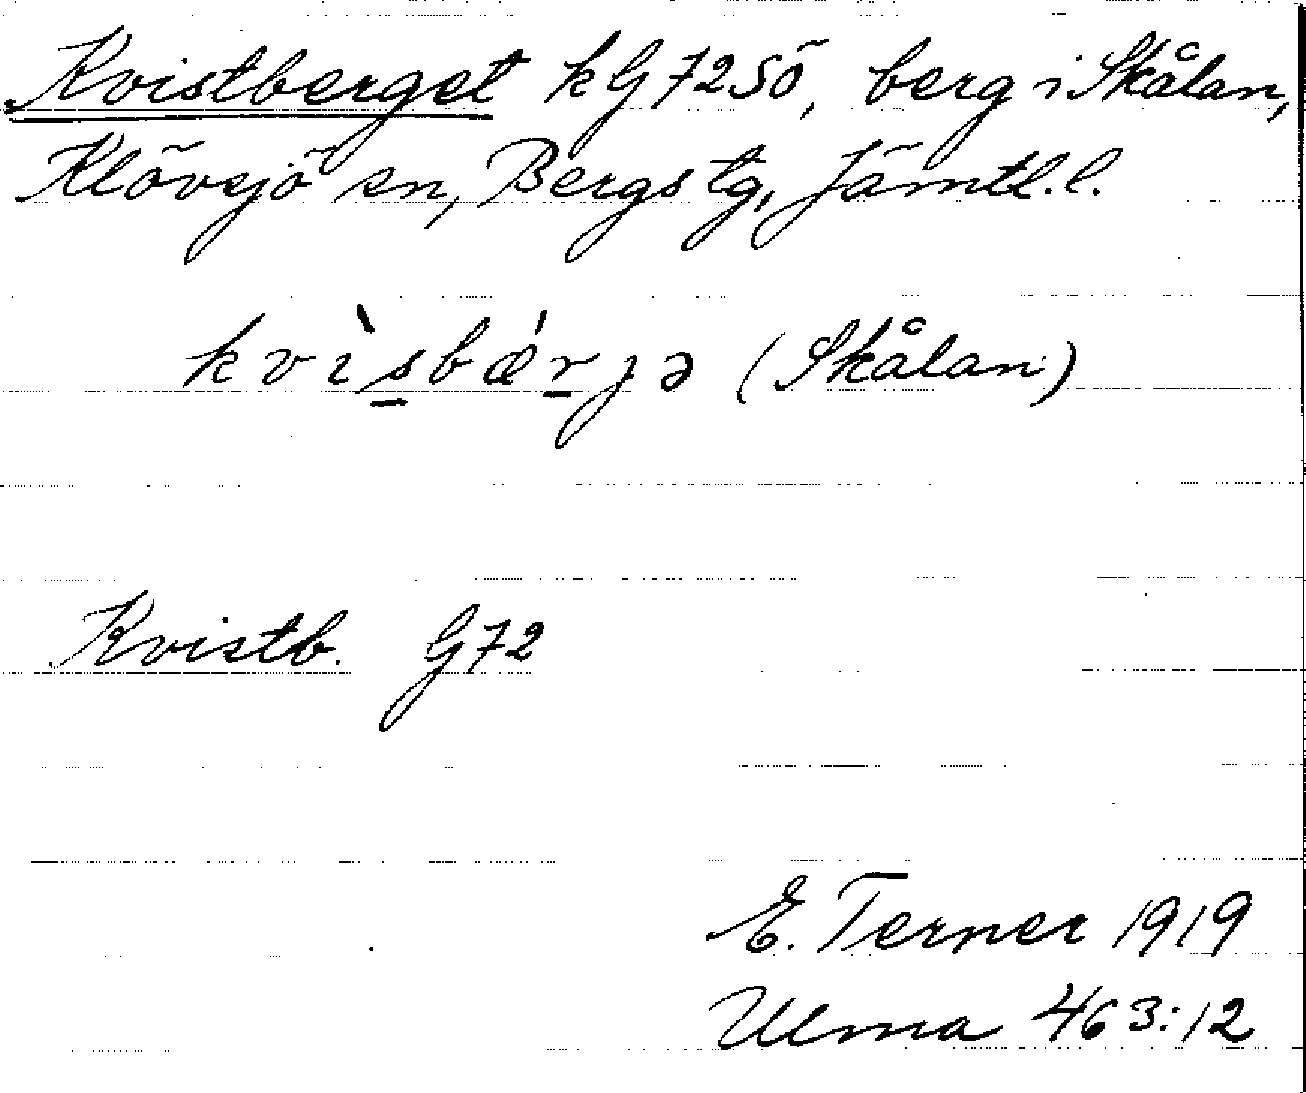 Kvistberget kG72SÖ, berg i Skålan,
Klövsjö sn, Bergs tg, Jämtl.l.
kvìsbǽrjə (Skålan)
Kvistb. G72
E. Terner 1919
Ulma 463:12